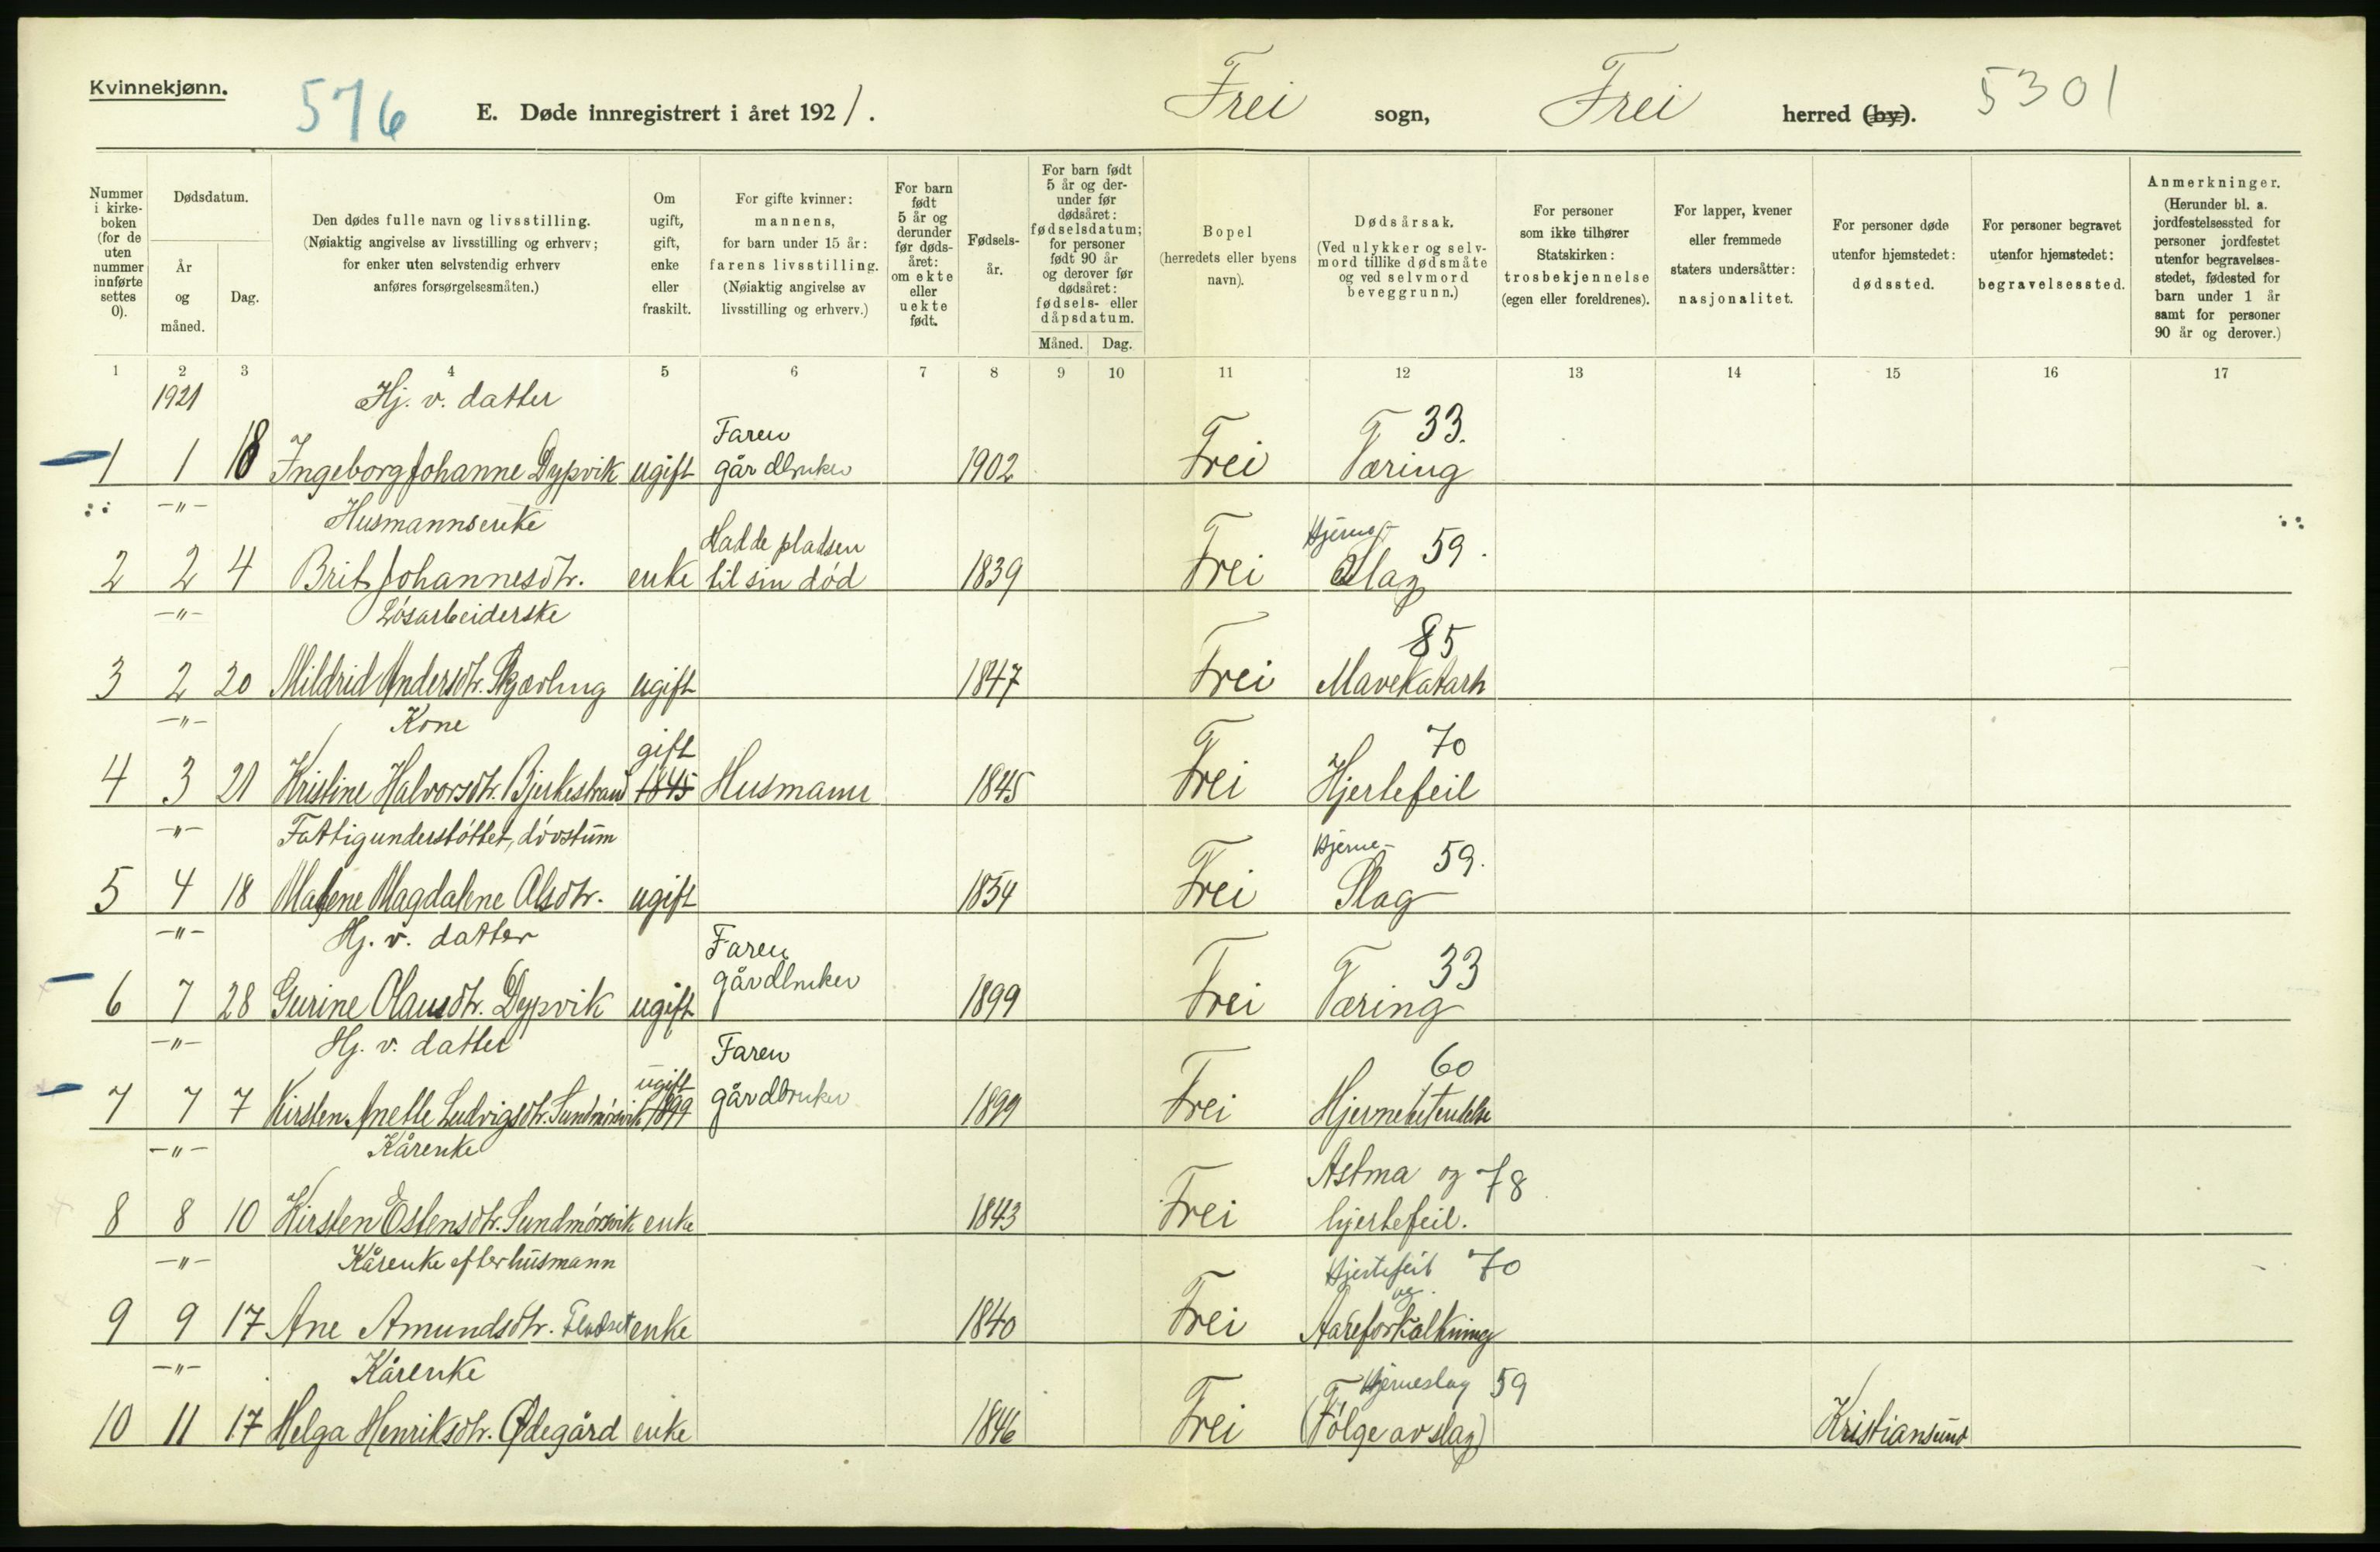 Kvinnekjønn.
576
E. Døde innregistrert i året 1921.
Frei sogn, Frei herred (by).
5301
Nummer i kirke- boken (for de uten nummer innførte settes 0).
Dødsdatum.
År og måned.
Dag.
Den dødes fulle navn og livsstilling. (Nøiaktig angivelse av livsstilling og erhverv; for enker uten selvstendig erhverv anføres forsørgelsesmåten.)
Om ugift, gift, enke eller fraskilt.
For gifte kvinner: mannens, for barn under 15 år: farens livsstilling. (Nøiaktig angivelse av livsstilling og erhverv.)
For barn født 5 år og derunder før døds- året: om ekte eller uekte født.
Fødsels- år.
For barn født 5 år og der- under før dødsåret: fødselsdatum; for personer født 90 år og derover før dødsåret: fødsels- eller dåpsdatum.
Måned. Dag.
Bopel (herredets eller byens navn).
Dødsårsak. (Ved ulykker og selv- mord tillike dødsmåte og ved selvmord beveggrunn.)
For personer som ikke tilhører Statskirken: trosbekjennelse (egen eller foreldrenes).
For lapper, kvener eller fremmede staters undersåtter: nasjonalitet.
For personer døde utenfor hjemstedet: dødssted.
For personer begravet utenfor hjemstedet: begravelsessted.
Anmerkninger. (Herunder bl. a. jordfestelsessted for personer jordfestet utenfor begravelses- stedet, fødested for barn under 1 år samt for personer 90 år og derover.)
1 2 3 4 5 6 7 8 9 10 11 12 13 14 15 16 17
1921 Hj. v. datter
Faren 33.
1 1 18 Ingeborg Johanne Dypvik ugift gårdbruker 1902 Frei Tæring
-"- Husmannsenke Hadde pladsen Hjerne- 59.
2 2 4 Brit Johannesdtr. enke til sin död 1839 Frei Slag
-"- Lösarbeiderske 85
3 2 20 Mildrid Andersdtr. ugift 1847 Frei Mavekatarh
-"- Kone gift 70
4 3 21 Kristine Halvorsdtr. Bjerkestrand 1845 Husmann 1845 Frei Hjertefeil
-"- Fattigunderstöttet, dövstum Hjerne- 59.
5 4 18 Malene Magdalene Olsdtr. ugift 1854 Frei Slag
-"- Hj. v. datter Faren 33
6 7 28 Gurine Olausdtr. Dypvik ugift gårdbruker 1899 Frei Tæring
-"- Hj. v. datter ugift Faren 60
7 7 7 Kirsten Anette Ludvigsdtr. Sundmörsvik 1899 gårdbruker 1899 Frei Hjernebetendelse
-"- Kårenke Astma og 78
8 8 10 Kirsten Estensdtr. Sundmörsvik enke 1843 Frei hjertefeil.
-"- Kårenke efter husmann Hjertefeil 70 og
9 9 17 Ane Amundsdtr. Flatset enke 1840 Frei Aareforkalkning
-"- Kårenke Hjerneslag 59
10 11 17 Helga Henriksdtr. Ødegård enke 1846 Frei (Fölge av slag) Kristiansund